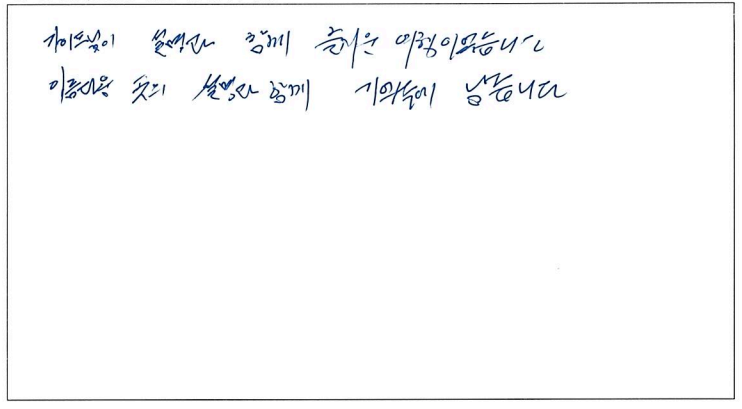 가이드님이 설명과 함께 즐거운 여행이었습니다
꽃의 설명과 함께 기억속에 남습니다